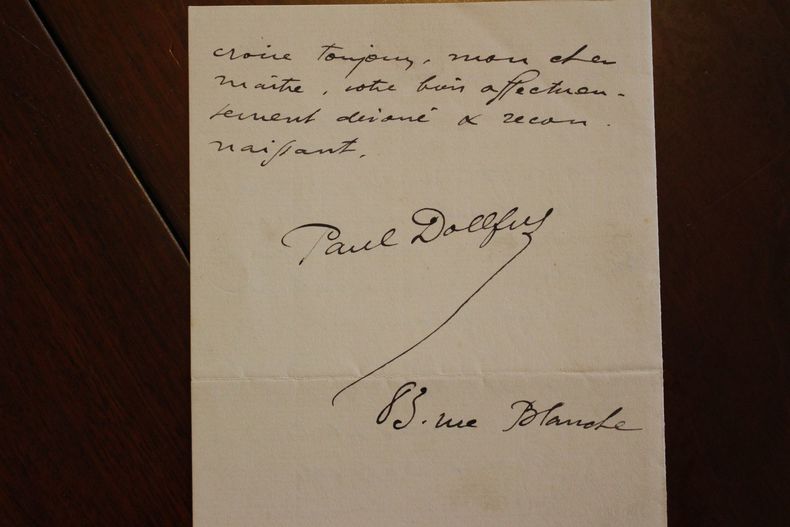 croire toujours, mon cher
maître, votre bien affectueu-
sement dévoué & recon-
naissant.
Paul Dollfus
83. rue Blanche